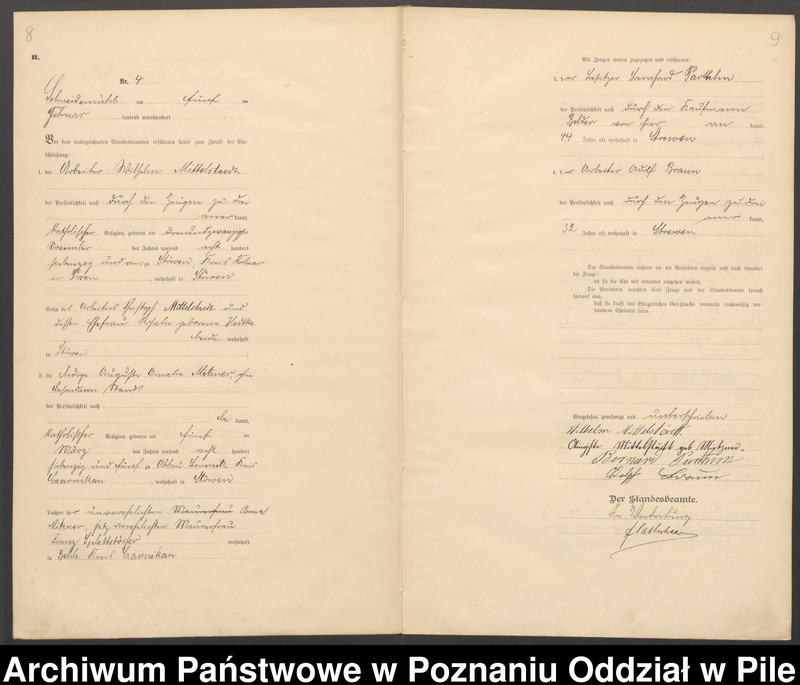 8
II.
Nr. 4
Schneidemühl am fünf ten
Februar tausend neunhundert
Vor dem unterzeichneten Standesbeamten erschienen heute zum Zweck der Ehe-
schließung:
1. der Arbeiter Wilhelm Mittelstaedt
der Persönlichkeit nach durch den Zeugen zu drei
kannt,
katholischer Religion, geboren am dreiundzwanzigsten
November des Jahres tausend acht hundert
siebenzig und vier zu Stöwen, Kreis Kolmar
in Posen, wohnhaft in Stöwen
Sohn des Arbeiters Christoph Mittelstaedt und
dessen Ehefrau Rosalie geborene Hedtke
beide wohnhaft
in Stöwen
2. die ledige Auguste Amalie Mixner, ohne
besonderen Stand
der Persönlichkeit nach
kannt,
katholischer Religion, geboren am fünf ten
März des Jahres tausend acht hundert
siebenzig und fünf zu Kreis
Czarnikau, wohnhaft in Stöwen
Tochter der unverehelichten Maurerfrau Anna
Mixner, jetzt verehelichten Maurerfrau
Franz Splettstößer wohnhaft
in Behle Kreis Czarnikau
9
Als Zeugen waren zugezogen und erschienen:
3. der Besitzer Bernhard
der Persönlichkeit nach durch den Kaufmann
von hier an kannt,
44 Jahre alt, wohnhaft in Stöwen
4. der Arbeiter Adolf Braun
der Persönlichkeit nach durch den Zeugen zu drei
kannt,
32 Jahre alt, wohnhaft in Stöwen
Der Standesbeamte richtete an die Verlobten einzeln und nach einander
die Frage:
ob sie die Ehe mit einander eingehen wollen.
Die Verlobten bejahten diese Frage und der Standesbeamte sprach
hierauf aus,
daß sie kraft des Bürgerlichen Gesetzbuchs nunmehr rechtmäßig ver-
bundene Eheleute seien.
Vorgelesen, genehmigt und unterschrieben
Wilhelm Mittelstädt
Auguste Mittelstädt geb.
Adolf Braun
Der Standesbeamte.
In Vertretung
Archiwum Państwowe w Poznaniu Oddział w Pile